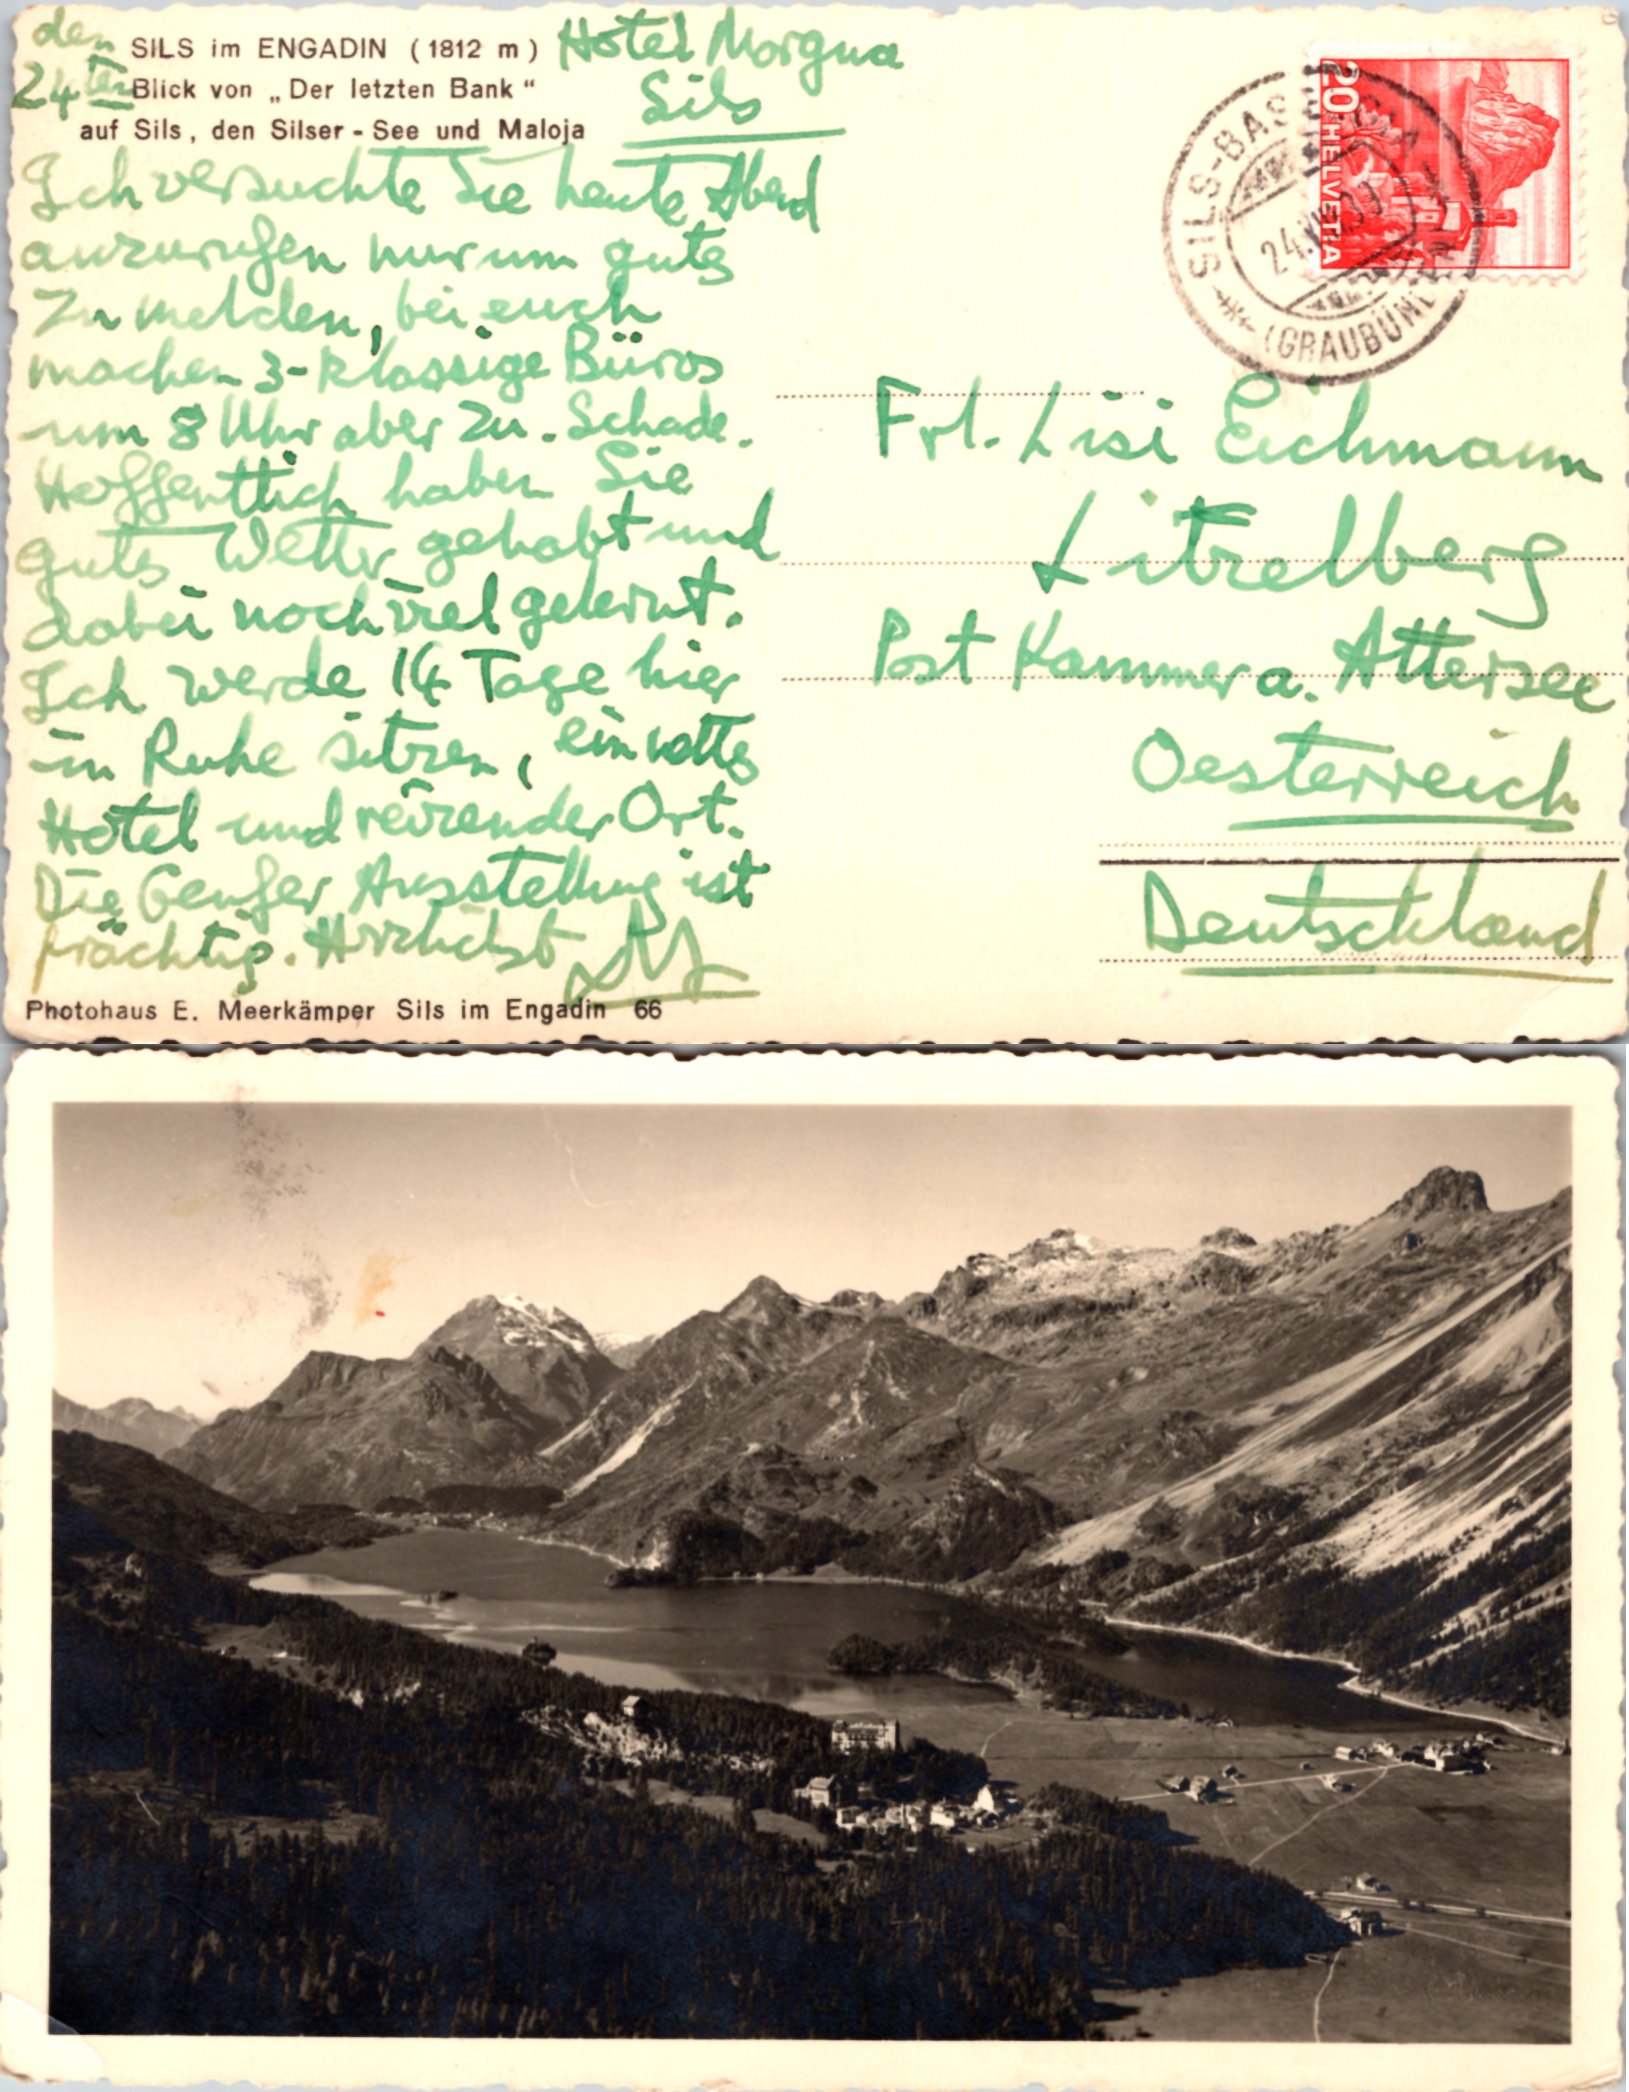 den
24ten
SILS im ENGADIN ( 1812 m )
Blick von „Der letzten Bank“
auf Sils, den Silser-See und Maloja
Hotel Margna
Sils
Ich versuchte Sie heute Abend
anzurufen nur um gutes
zu melden, bei euch
machen 3-klassige Büros
um 8 Uhr aber zu. Schade.
Hoffentlich haben Sie
gutes Wetter gehabt und
dabei noch viel gelernt.
Ich werde 14 Tage hier
in Ruhe sitzen, ein nettes
Hotel und reizender Ort.
Die Genfer Ausstellung ist
prächtig. Herzlichst
Photohaus E. Meerkämper Sils im Engadin 66
20 HELVETIA
SILS-BASELGIA
24.VII.39
(GRAUBÜNDEN)
Frl. Lisi Eichmann
Litzelberg
Post Kammer a. Attersee
Oesterreich
Deutschland